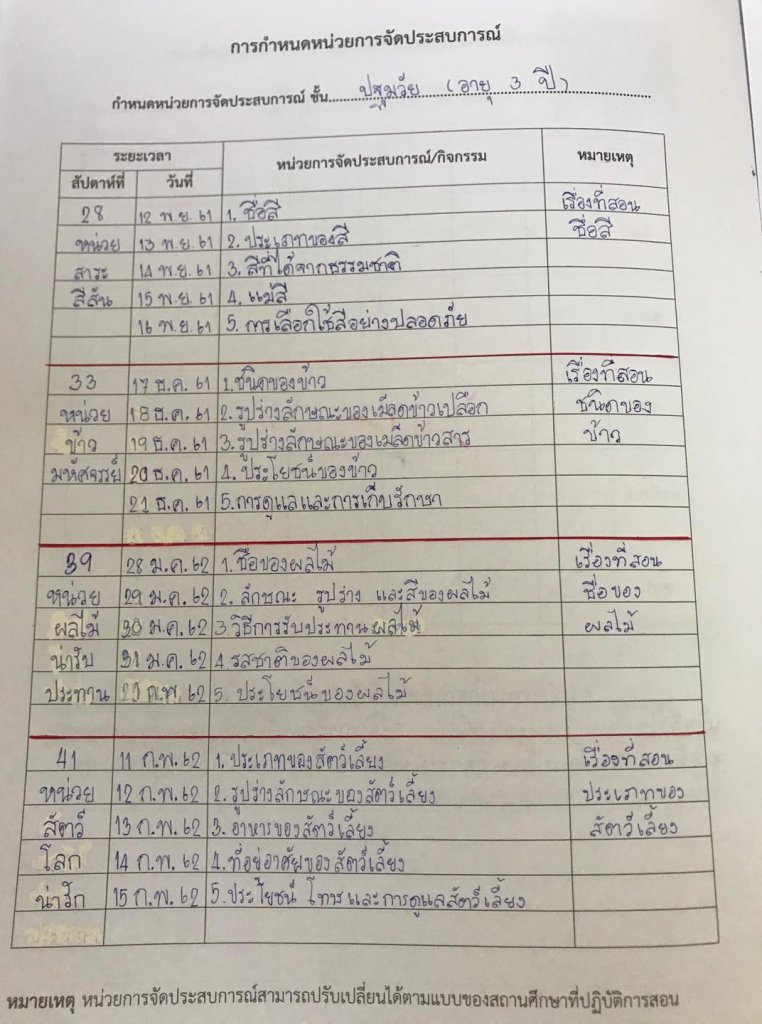 การกำหนดหน่วยการจัดประสบการณ์
กำหนดหน่วยการจัดประสบการณ์ ชั้น ปฐมวัย (อายุ 3 ปี)
ระยะเวลา หน่วยการจัดประสบการณ์/กิจกรรม หมายเหตุ
สัปดาห์ที่ วันที่
28 12 พ.ย. 61 1. ชื่อสี เรื่องที่สอน
หน่วย 13 พ.ย. 61 2. ประเภทของสี ชื่อสี
สาระ 14 พ.ย. 61 3. สีที่ได้จากธรรมชาติ
สีสัน 15 พ.ย. 61 4. แม่สี
16 พ.ย. 61 5. การเลือกใช้สีอย่างปลอดภัย
33 17 ธ.ค. 61 1. ชนิดของข้าว เรื่องที่สอน
หน่วย 18 ธ.ค. 61 2. รูปร่างลักษณะของเมล็ดข้าวเปลือก ชนิดของ
ข้าว 19 ธ.ค. 61 3. รูปร่างลักษณะของเมล็ดข้าวสาร ข้าว
มหัศจรรย์ 20 ธ.ค. 61 4. ประโยชน์ของข้าว
21 ธ.ค. 61 5. การดูแลและการเก็บรักษา
39 28 ม.ค. 62 1. ชื่อของผลไม้ เรื่องที่สอน
หน่วย 29 ม.ค. 62 2. ลักษณะ รูปร่าง และสีของผลไม้ ชื่อของ
ผลไม้ 30 ม.ค. 62 3 วิธีการรับประทานผลไม้ ผลไม้
น่ารับ 31 ม.ค. 62 4. รสชาติของผลไม้
ประทาน ก.พ. 62 5. ประโยชน์ของผลไม้
41 11 ก.พ. 62 1. ประเภทของสัตว์เลี้ยง เรื่องที่สอน
หน่วย 12 ก.พ. 62 2. รูปร่างลักษณะของสัตว์เลี้ยง ประเภทของ
สัตว์ 13 ก.พ. 62 3. อาหารของสัตว์เลี้ยง สัตว์เลี้ยง
โลก 14 ก.พ. 62 4. ที่อยู่อาศัยของสัตว์เลี้ยง
น่ารัก 15 ก.พ. 62 5. ประโยชน์ โทษและการดูแลสัตว์เลี้ยง
หมายเหตุ หน่วยการจัดประสบการณ์สามารถปรับเปลี่ยนได้ตามแบบของสถานศึกษาที่ปฏิบัติการสอน